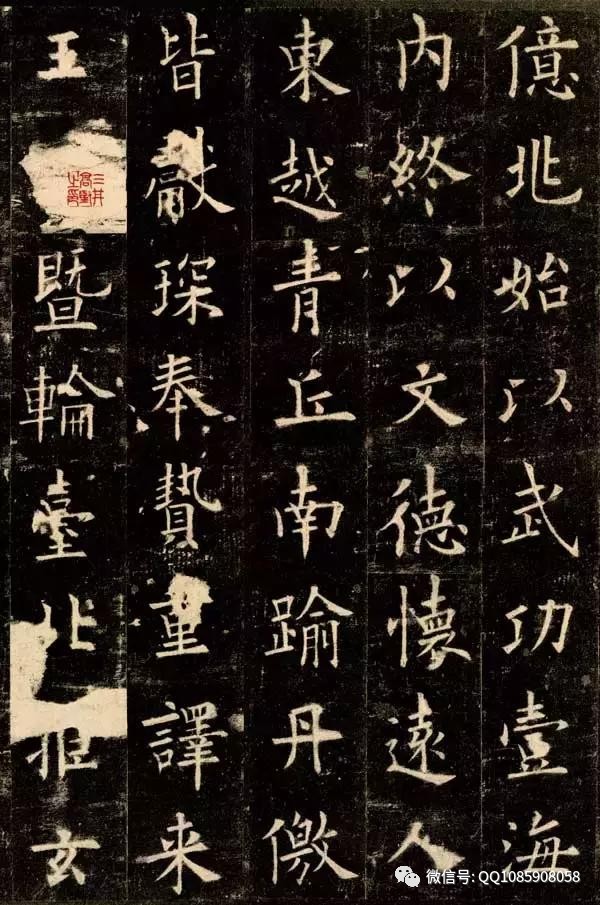 億兆始以武功壹海
内終以文德懷遠人
東越青丘南踰丹徼
皆獻琛奉贄重譯来
王暨輪臺北拒玄
三井高堅之印
微信号: QQ1085908058